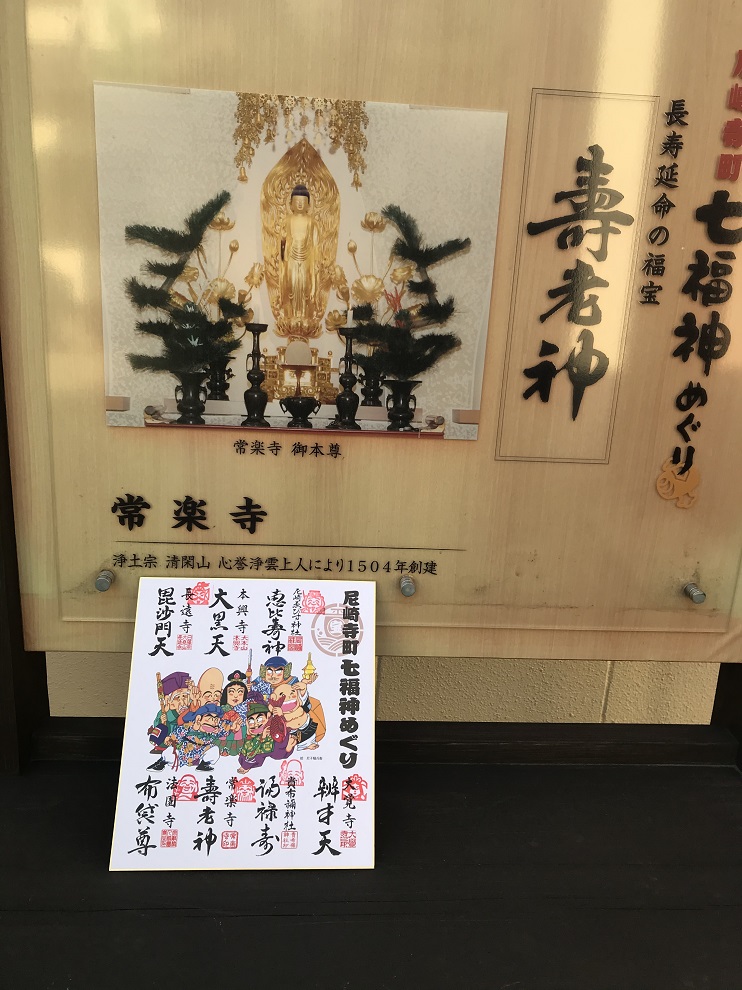 尼崎寺町
七福神めぐり
長寿延命の福宝
壽老神
常楽寺 御本尊
常楽寺
浄土宗 清閑山 心誉浄雲上人により1504年創建
尼崎寺町 七福神めぐり
尼崎えびす神社
恵比寿神
本興寺
大黒天
長遠寺
毘沙門天
大覚寺
辨才天
貴布禰神社
福禄寿
常楽寺
壽老神
法園寺
布袋尊